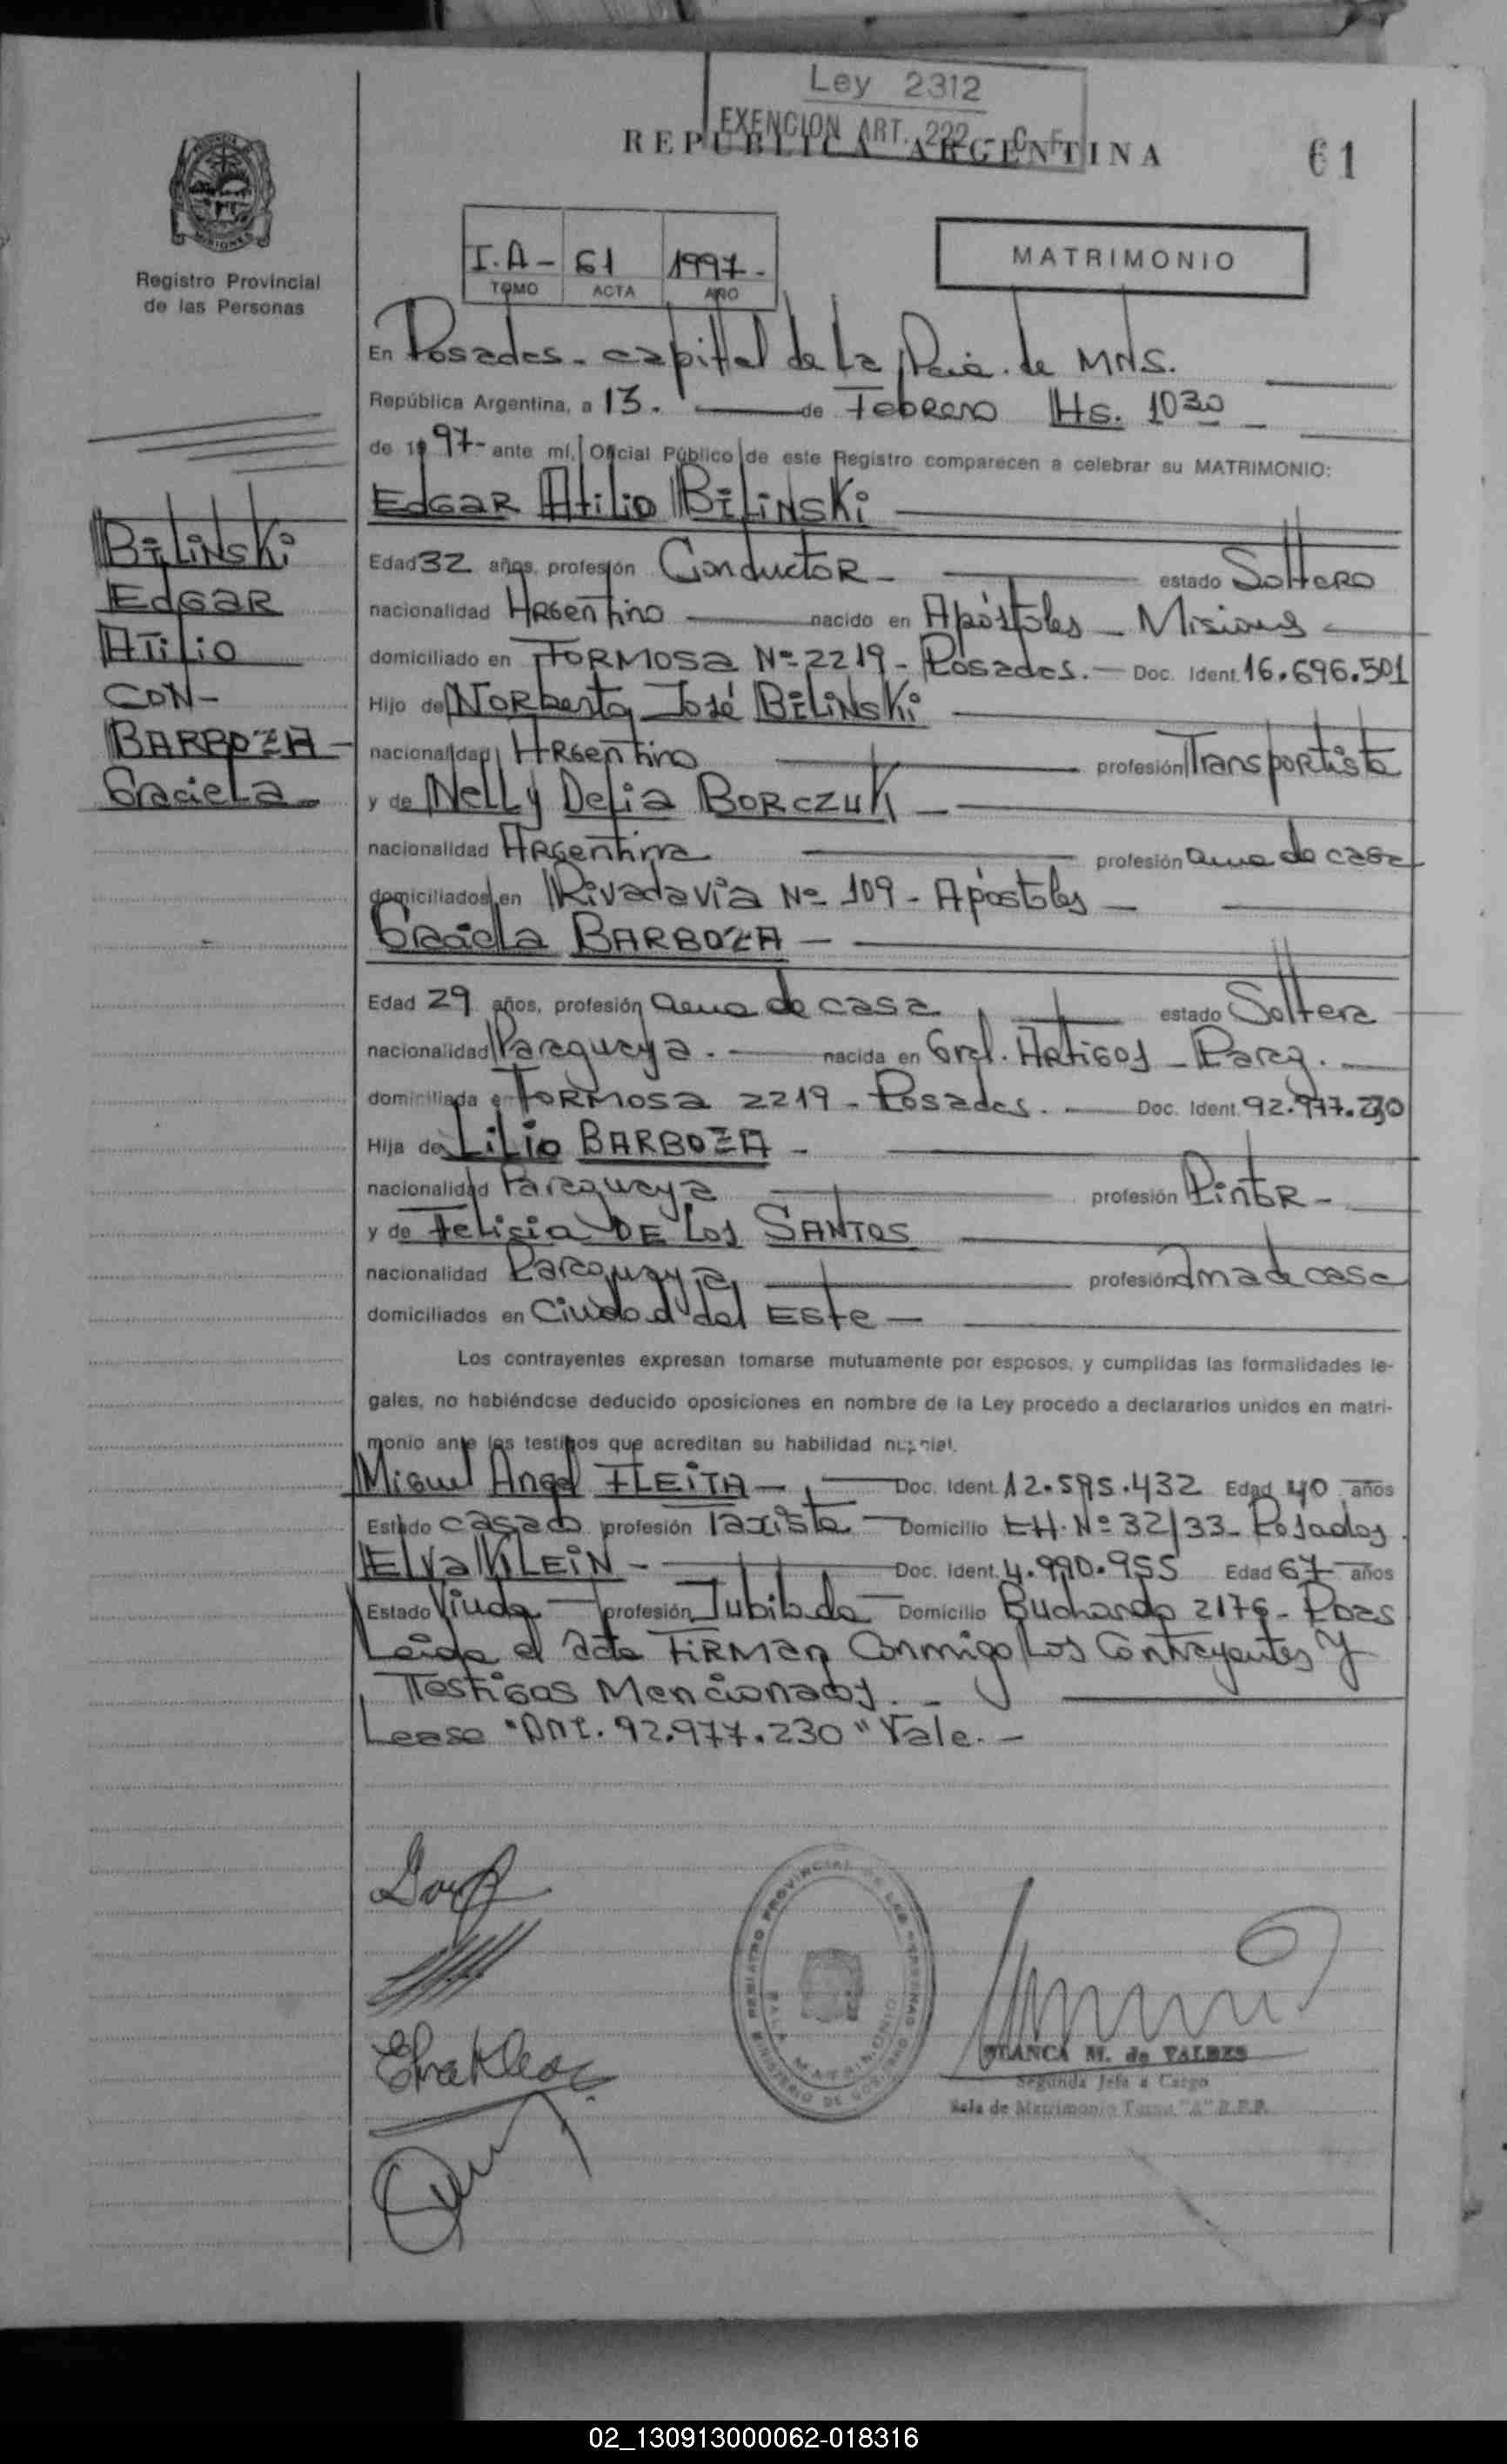 Ley 2312
EXENCION ART. 222 - C. F.
REPUBLICA ARGENTINA
61
MISIONES
Registro Provincial
de las Personas
I. A - 61 1997 -
TOMO ACTA AÑO
MATRIMONIO
En Posadas - capital de la Pcia. de MNS.
República Argentina, a 13. de Febrero Hs. 1030
de 1997 - ante mí, Oficial Público de este Registro comparecen a celebrar su MATRIMONIO:
Edgar Atilio Bilinski
Bilinski
Edgar
Atilio
CON -
BARBOZA -
Graciela -
Edad 32 años, profesión Conductor - estado Soltero
nacionalidad Argentino nacido en Apóstoles - Misiones
domiciliado en Formosa Nº 2219 - Posadas. - Doc. Ident. 16.696.501
Hijo de Norberto José Bilinski
nacionalidad Argentino profesión Transportista
y de Nelly Delia Borczuk -
nacionalidad Argentina profesión ama de casa
domiciliados en Rivadavia Nº 109 - Apóstoles -
Graciela BARBOZA -
Edad 29 años, profesión ama de casa estado Soltera
nacionalidad Paraguaya. - nacida en Gral. Artigos - Parag.
domiciliada en Formosa 2219 - Posadas. - Doc. Ident. 92.977.230
Hija de Lilio BARBOZA -
nacionalidad Paraguaya profesión Pintor -
y de Felisia DE Los SANTOS
nacionalidad Paraguaya profesión Ama de casa
domiciliados en Ciudad del Este -
Los contrayentes expresan tomarse mutuamente por esposos, y cumplidas las formalidades le-
gales, no habiéndose deducido oposiciones en nombre de la Ley procedo a declararlos unidos en matri-
monio ante los testigos que acreditan su habilidad nupcial.
Miguel Angel FLEITA - Doc. Ident. 12.595.432 Edad 40 años
Estado casado profesión Taxista - Domicilio CH. Nº 32/33 - Posadas.
Elva KLEIN - Doc. Ident. 4.990.955 Edad 67 años
Estado Viuda - profesión Jubilada - Domicilio Buchardo 2176 - Pdas
Leída el acta Firman Conmigo Los Contrayentes y
Testigos Mencionados. -
Lease "DNI. 92.977.230" Vale. -
REGISTRO PROVINCIAL DE LAS PERSONAS
MINISTERIO DE GOBIERNO
SALA MATRIMONIO
BLANCA M. de VALDES
Segunda Jefe a Cargo
Sala de Matrimonio Turno "A" R.P.P.
02_130913000062-018316